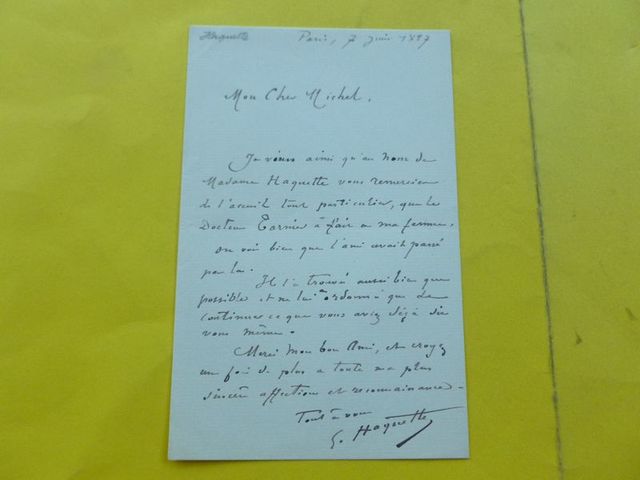 Haquette
Paris, 7 Juin 1897
Mon Cher Michel,
Je viens ainsi qu'au nom de
Madame Haquette vous remercier
de l'acceuil tout particulier, que le
Docteur Tarnier à fait a ma femme,
on voit bien que l'ami avait passé
par la.
Il l'a trouvé aussi bien que
possible et ne lui a ordonné que de
continuer ce que vous aviez déjà
vous même.
Merci mon bon Ami, et croyez
une fois de plus a toute ma plus
sincère affection et reconnaissance
Tout à vous
G. Haquette